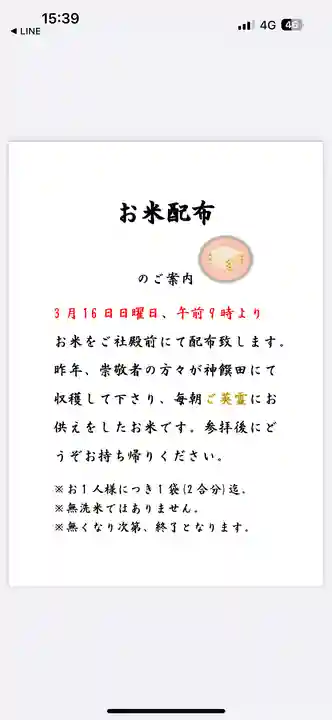 15:39
LINE
4G
46
お米配布
のご案内
3月16日日曜日、午前9時より
お米をご社殿前にて配布致します。
昨年、崇敬者の方々が神饌田にて
収穫して下さり、毎朝ご英霊にお
供えをしたお米です。参拝後にど
うぞお持ち帰りください。
※お1人様につき1袋(2合分)迄。
※無洗米ではありません。
※無くなり次第、終了となります。